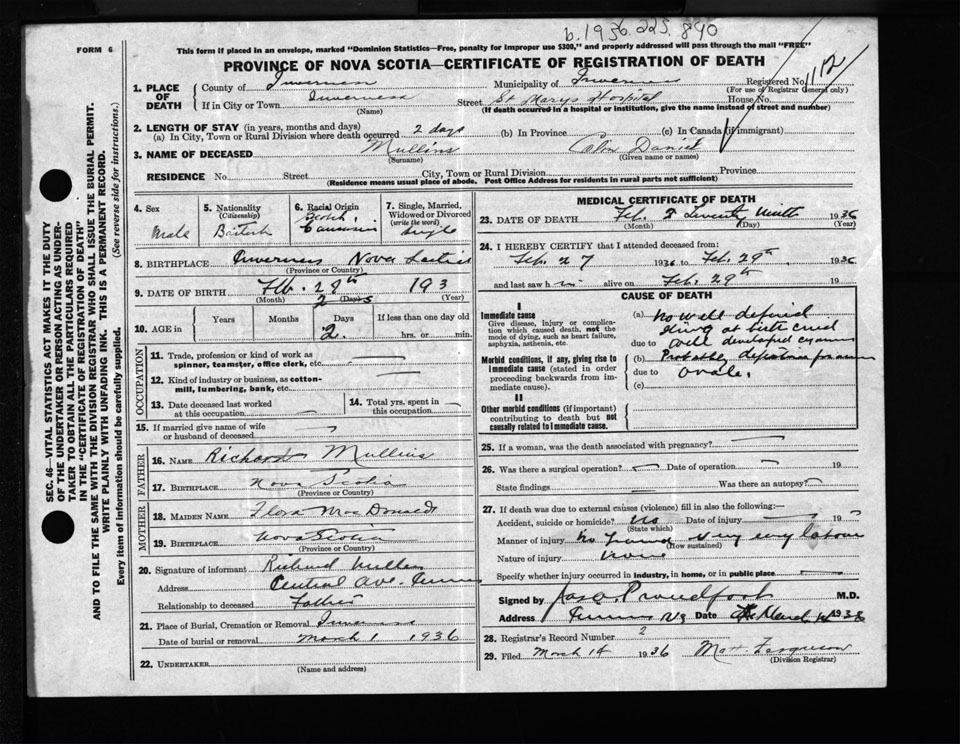 b.1936.225.840
FORM 6
This form if placed in an envelope, marked "Dominion Statistics—Free, penalty for improper use $300," and properly addressed will pass through the mail "FREE"
PROVINCE OF NOVA SCOTIA—CERTIFICATE OF REGISTRATION OF DEATH
SEC. 46—VITAL STATISTICS ACT MAKES IT THE DUTY
OF THE UNDERTAKER OR PERSON ACTING AS UNDER-
TAKER TO OBTAIN ALL THE PARTICULARS REQUIRED
IN THE "CERTIFICATE OF REGISTRATION OF DEATH"
AND TO FILE THE SAME WITH THE DIVISION REGISTRAR WHO SHALL ISSUE THE BURIAL PERMIT.
WRITE PLAINLY WITH UNFADING INK. THIS IS A PERMANENT RECORD.
Every item of information should be carefully supplied. (See reverse side for instructions.)
1. PLACE OF DEATH County of Inverness Municipality of Inverness Registered No. 112
(For use of Registrar General only)
If in City or Town Inverness Street St Marys Hospital House No.
(Name) (If death occurred in a hospital or institution, give the name instead of street and number)
2. LENGTH OF STAY (in years, months and days)
(a) In City, Town or Rural Division where death occurred 2 days (b) In Province (c) In Canada (if immigrant)
3. NAME OF DECEASED Mullins Colin Daniel
(Surname) (Given name or names)
RESIDENCE No. Street City, Town or Rural Division Province
(Residence means usual place of abode. Post Office Address for residents in rural parts not sufficient)
4. Sex Male
5. Nationality (Citizenship) British
6. Racial Origin Scotch
7. Single, Married, Widowed or Divorced (write the word) Single
8. BIRTHPLACE Inverness Nova Scotia
(Province or Country)
9. DATE OF BIRTH Feb. 28th 193
(Month) (Day) (Year)
2 Days
10. AGE in Years Months Days 2. If less than one day old hrs. or min.
OCCUPATION
11. Trade, profession or kind of work as spinner, teamster, office clerk, etc.
12. Kind of industry or business, as cotton-mill, lumbering, bank, etc.
13. Date deceased last worked at this occupation
14. Total yrs. spent in this occupation
15. If married give name of wife or husband of deceased
FATHER
16. NAME Richard Mullins
17. BIRTHPLACE Nova Scotia
(Province or Country)
MOTHER
18. MAIDEN NAME Flora MacDonald
19. BIRTHPLACE Nova Scotia
(Province or Country)
20. Signature of informant Richard Mullins
Address Central Ave.
Relationship to deceased Father
21. Place of Burial, Cremation or Removal Inverness
Date of burial or removal March 1 1936
22. UNDERTAKER
(Name and address)
MEDICAL CERTIFICATE OF DEATH
23. DATE OF DEATH Feb. Twenty Ninth 1936
(Month) (Day) (Year)
24. I HEREBY CERTIFY that I attended deceased from:
Feb. 27 1936 to Feb. 29th, 1936
and last saw him alive on Feb. 29th
CAUSE OF DEATH
I
Immediate cause
Give disease, injury or complication which caused death, not the mode of dying, such as heart failure, asphyxia, asthenia, etc.
(a) no well defined
at birth
due to well developed
Morbid conditions, if any, giving rise to immediate cause (stated in order proceeding backwards from immediate cause).
(b) Probably
due to ovale.
(c)
II
Other morbid conditions (if important) contributing to death but not causally related to immediate cause.
25. If a woman, was the death associated with pregnancy?
26. Was there a surgical operation? Date of operation 19
State findings Was there an autopsy?
27. If death was due to external causes (violence) fill in also the following:—
Accident, suicide or homicide? No Date of injury 19
(State which)
Manner of injury very easy labour
(How sustained)
Nature of injury
Specify whether injury occurred in industry, in home, or in public place
Signed by Jas. Proudfoot M.D.
Address NS Date March 1936
28. Registrar's Record Number 2
29. Filed March 14 1936 Ferguson
(Division Registrar)